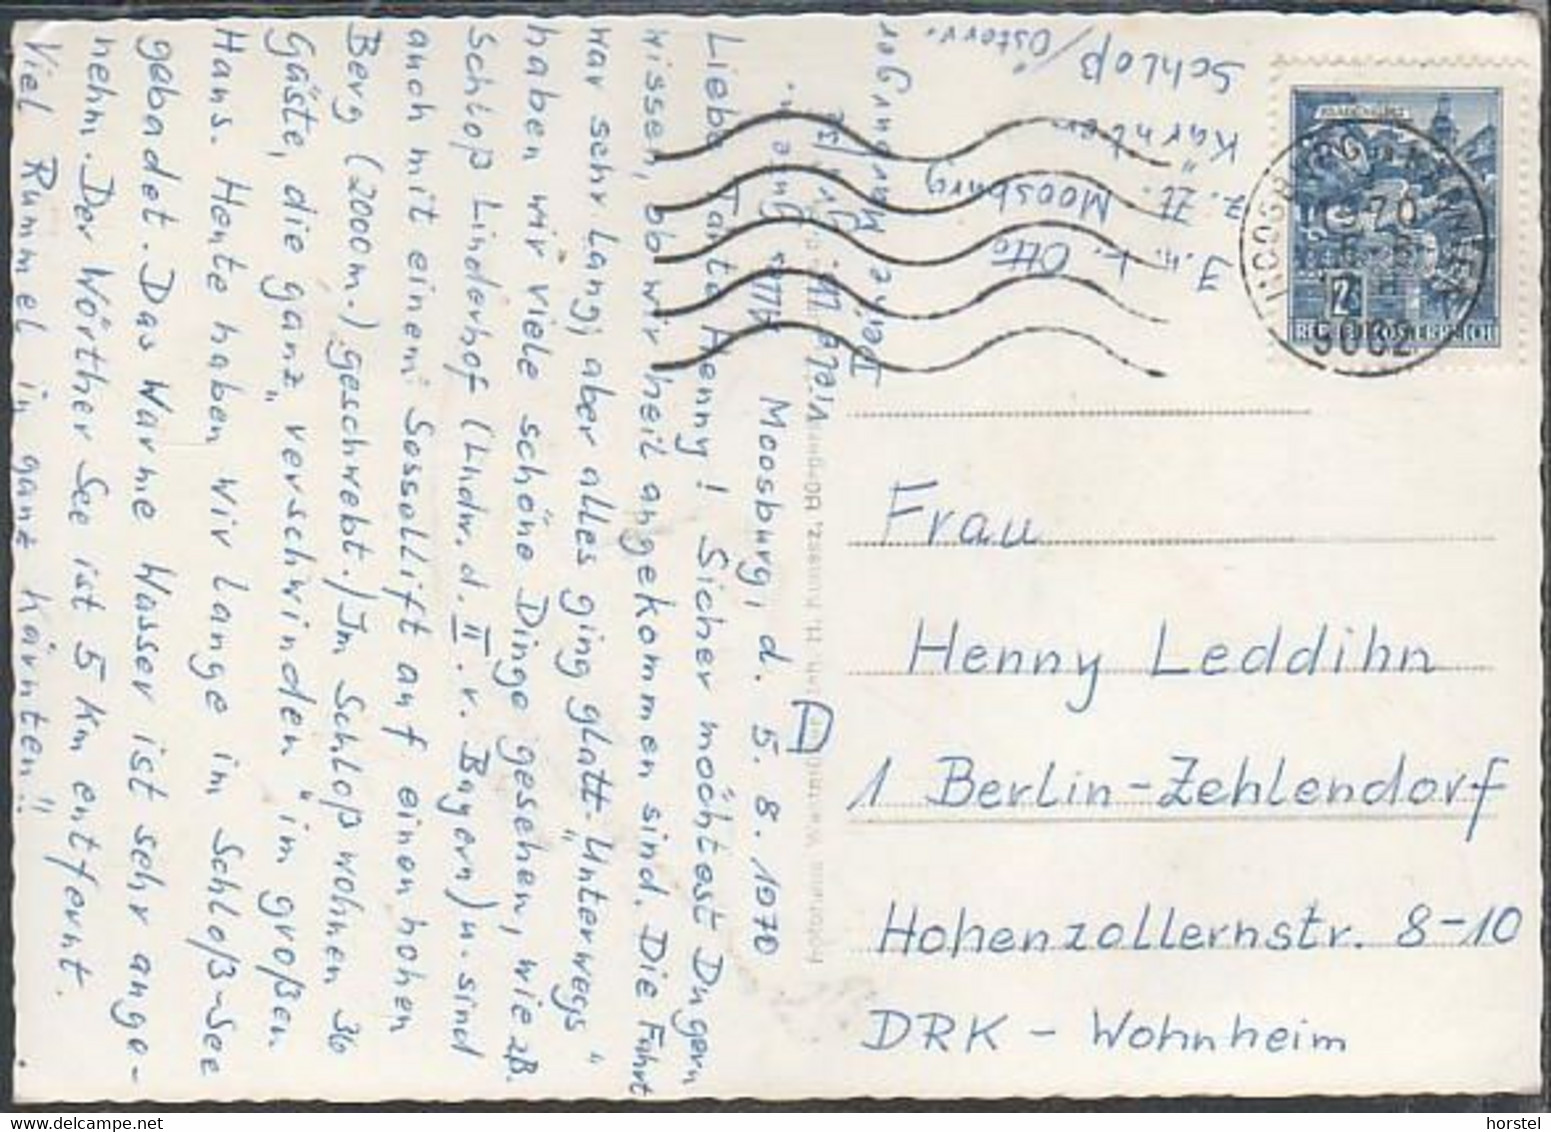 Moosburg, d. 5.8.1970
Liebe Tante Henny! Sicher möchtest Du gern
wissen, ob wir heil angekommen sind. Die Fahrt
war sehr lang, aber alles ging glatt. "Unterwegs"
haben wir viele schöne Dinge gesehen, wie z.B.
Schloß Linderhof (Ludw. d. II. v. Bayern) u. sind
auch mit einem Sessellift auf einen hohen
Berg (2000m.) geschwebt. / Im Schloß wohnen 36
Gäste, die ganz "verschwinden" im großen
Haus. Heute haben wir lange im Schloß-See
gebadet. Das Warme Wasser ist sehr ange-
nehm. Der Wörther See ist 5 km entfernt.
Viel Rummel in ganz Kärnten!!
Deine
J. u. K. Otto
z. Zt. Moosburg
Kärnten
Schloß
/Österr.
1970
9062
2
REPUBLIK ÖSTERREICH
D
Frau
Henny Leddihn
1 Berlin-Zehlendorf
Hohenzollernstr. 8-10
DRK - Wohnheim